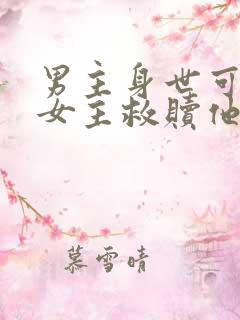 男主身世可
女主救赎他
慕雪晴